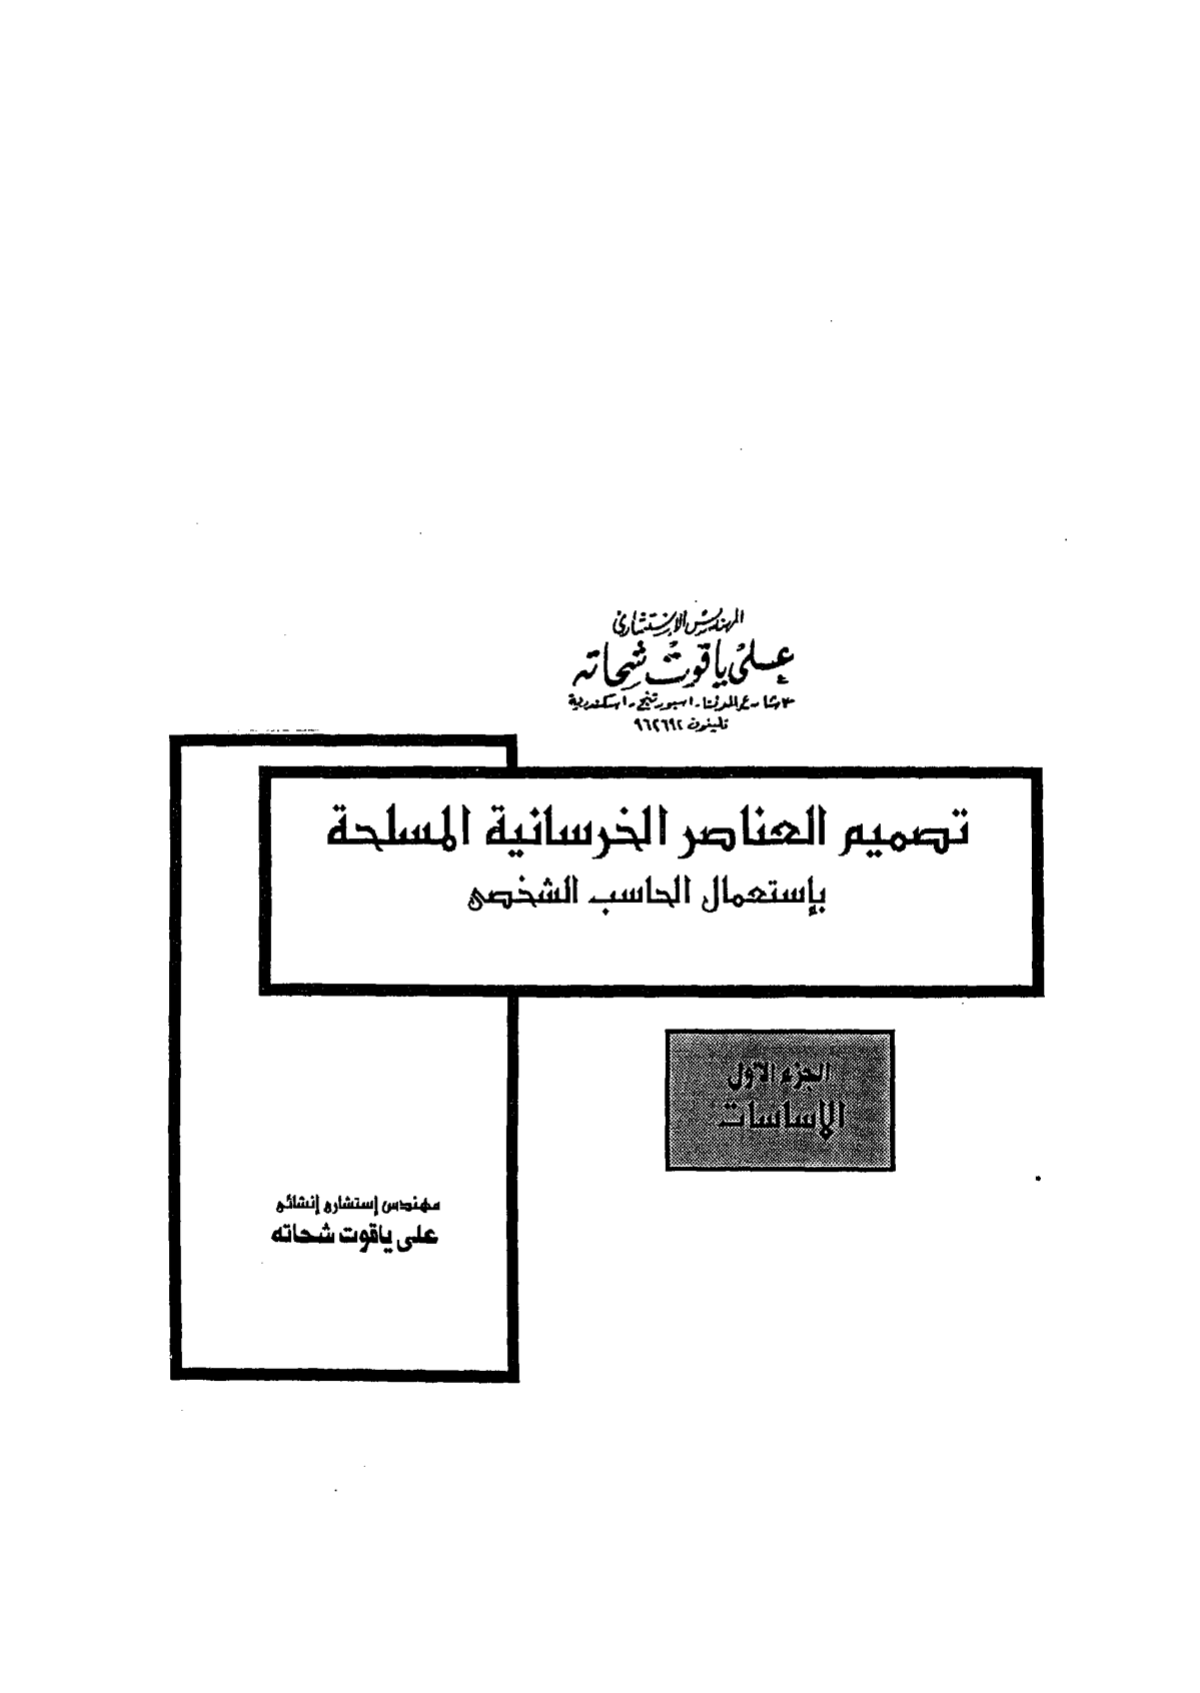 المهندس الإستشارى
على ياقوت شحاته
اسبورتنج - اسكندرية
تليفون ٩٦٢٦٩٢
تصميم العناصر الخرسانية المسلحة
بإستعمال الحاسب الشخصى
الجزء الأول
الأساسات
مهندس إستشارى إنشائى
على ياقوت شحاته